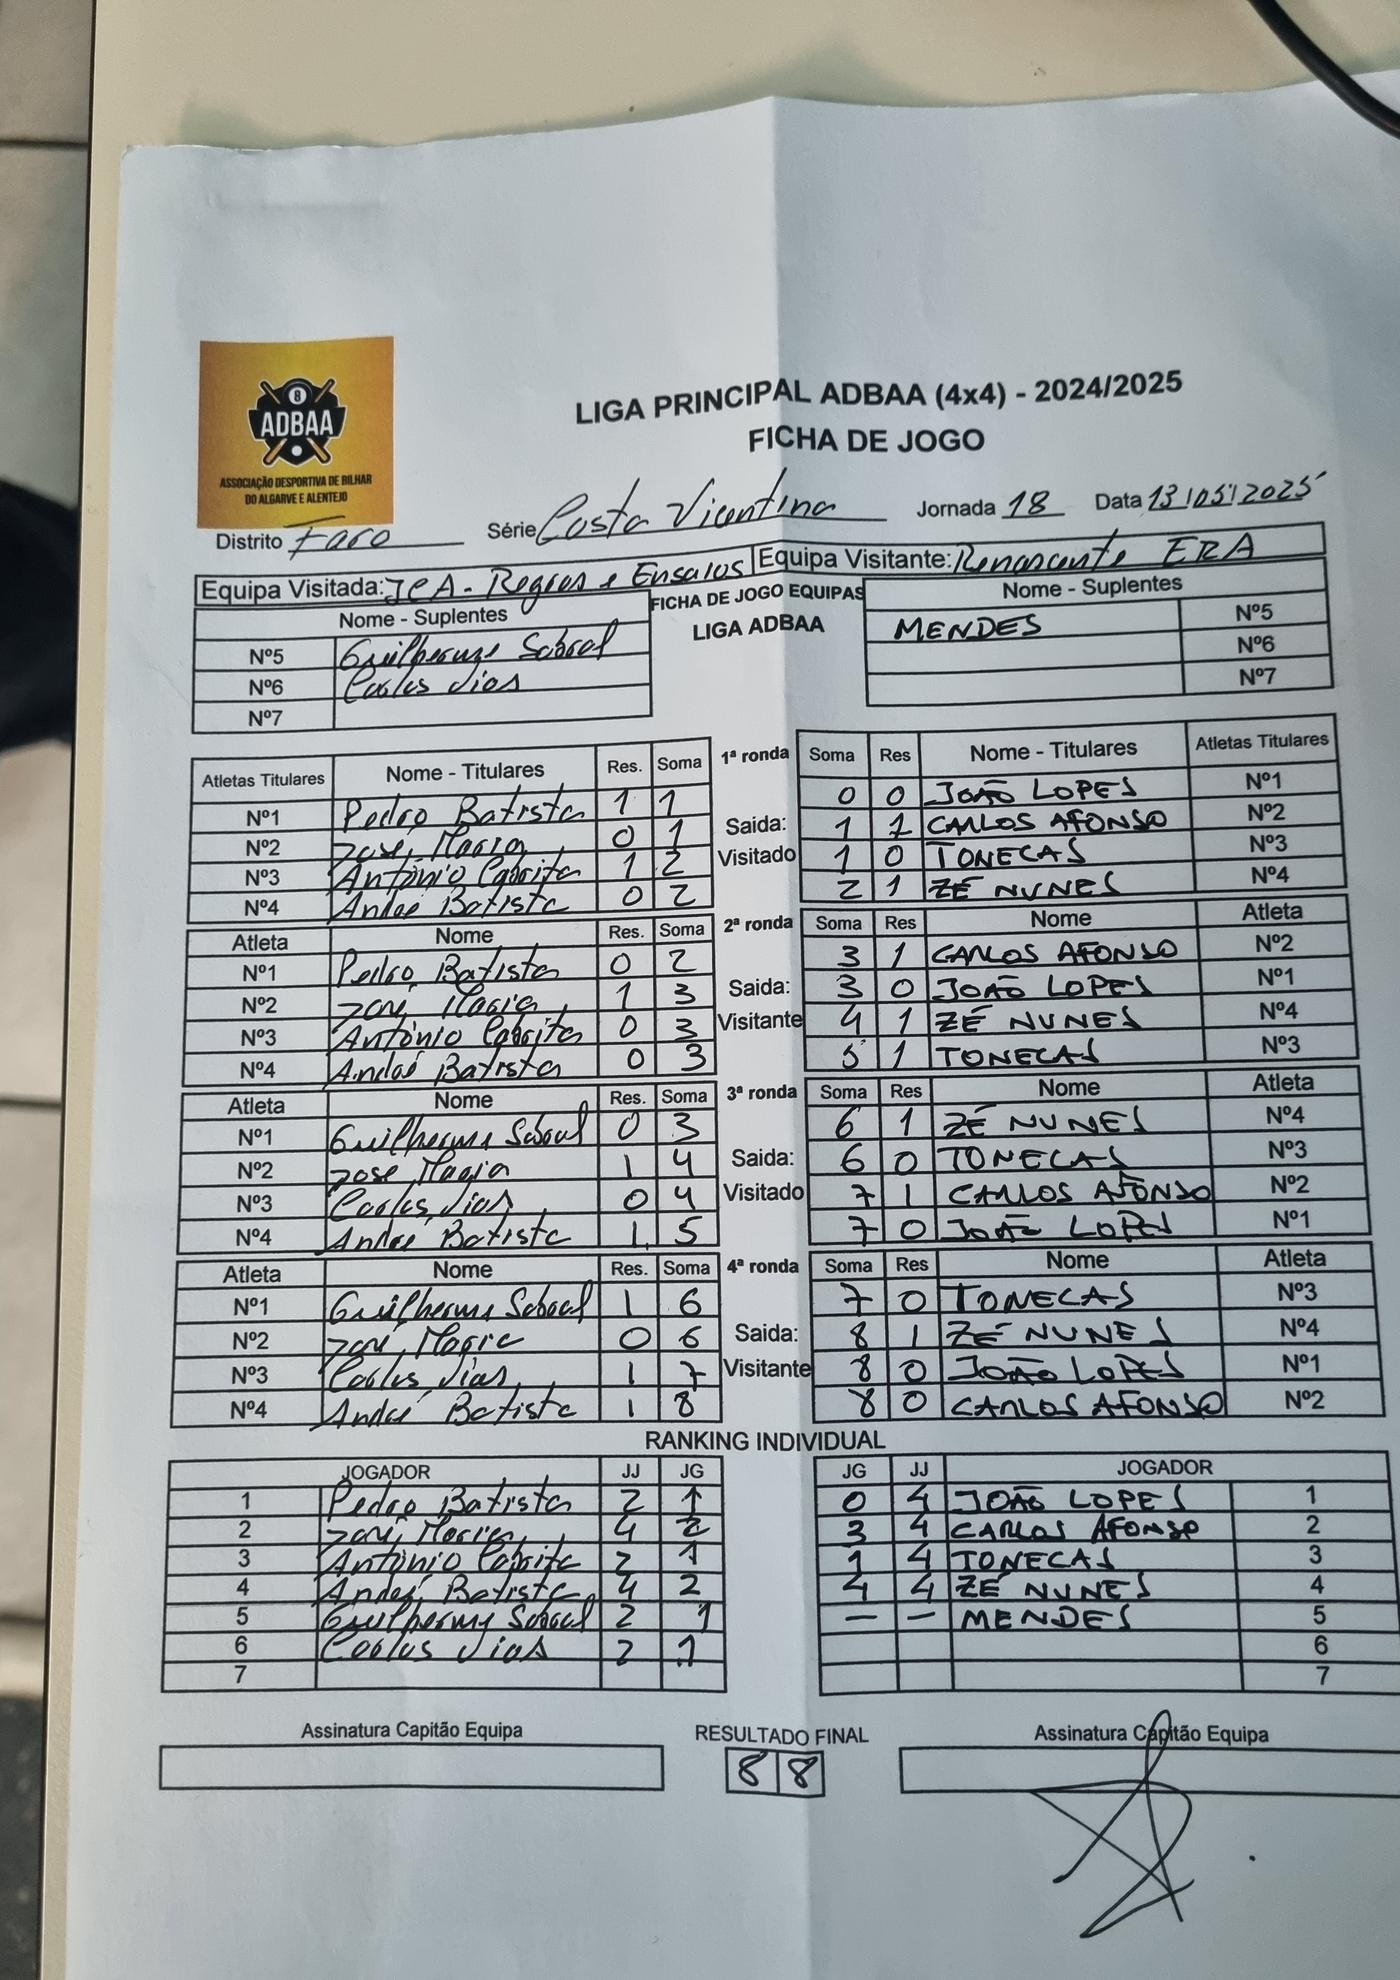 8
ADBAA
ASSOCIAÇÃO DESPORTIVA DE BILHAR
DO ALGARVE E ALENTEJO
LIGA PRINCIPAL ADBAA (4x4) - 2024/2025
FICHA DE JOGO
Distrito Faro Série Costa Vicentina Jornada 18 Data 13/05/2025
Equipa Visitada: JCA - Regros e Ensaios Equipa Visitante: Renascente ERA
Nome - Suplentes FICHA DE JOGO EQUIPAS Nome - Suplentes
LIGA ADBAA
Nº5 Guilherme Sobral MENDES Nº5
Nº6 Carlos Dias Nº6
Nº7 Nº7
Atletas Titulares Nome - Titulares Res. Soma 1ª ronda Soma Res Nome - Titulares Atletas Titulares
Nº1 Pedro Batista 1 1 0 0 JOÃO LOPES Nº1
Nº2 José Maria 0 1 Saida: 1 1 CARLOS AFONSO Nº2
Nº3 António Cabrita 1 2 Visitado 1 0 TONECAS Nº3
Nº4 André Batista 0 2 2 1 ZÉ NUNES Nº4
Atleta Nome Res. Soma 2ª ronda Soma Res Nome Atleta
Nº1 Pedro Batista 0 2 3 1 CARLOS AFONSO Nº2
Nº2 José Maria 1 3 Saida: 3 0 JOÃO LOPES Nº1
Nº3 António Cabrita 0 3 Visitante 4 1 ZÉ NUNES Nº4
Nº4 André Batista 0 3 5 1 TONECAS Nº3
Atleta Nome Res. Soma 3ª ronda Soma Res Nome Atleta
Nº1 Guilherme Sobral 0 3 6 1 ZÉ NUNES Nº4
Nº2 José Maria 1 4 Saida: 6 0 TONECAS Nº3
Nº3 Carlos Dias 0 4 Visitado 7 1 CARLOS AFONSO Nº2
Nº4 André Batista 1 5 7 0 JOÃO LOPES Nº1
Atleta Nome Res. Soma 4ª ronda Soma Res Nome Atleta
Nº1 Guilherme Sobral 1 6 7 0 TONECAS Nº3
Nº2 José Maria 0 6 Saida: 8 1 ZÉ NUNES Nº4
Nº3 Carlos Dias 1 7 Visitante 8 0 JOÃO LOPES Nº1
Nº4 André Batista 1 8 8 0 CARLOS AFONSO Nº2
RANKING INDIVIDUAL
JOGADOR JJ JG JG JJ JOGADOR
1 Pedro Batista 2 1 0 4 JOÃO LOPES 1
2 José Maria 4 2 3 4 CARLOS AFONSO 2
3 António Cabrita 2 1 1 4 TONECAS 3
4 André Batista 4 2 4 4 ZÉ NUNES 4
5 Guilherme Sobral 2 1 — — MENDES 5
6 Carlos Dias 2 1 6
7 7
Assinatura Capitão Equipa RESULTADO FINAL Assinatura Capitão Equipa
8 8